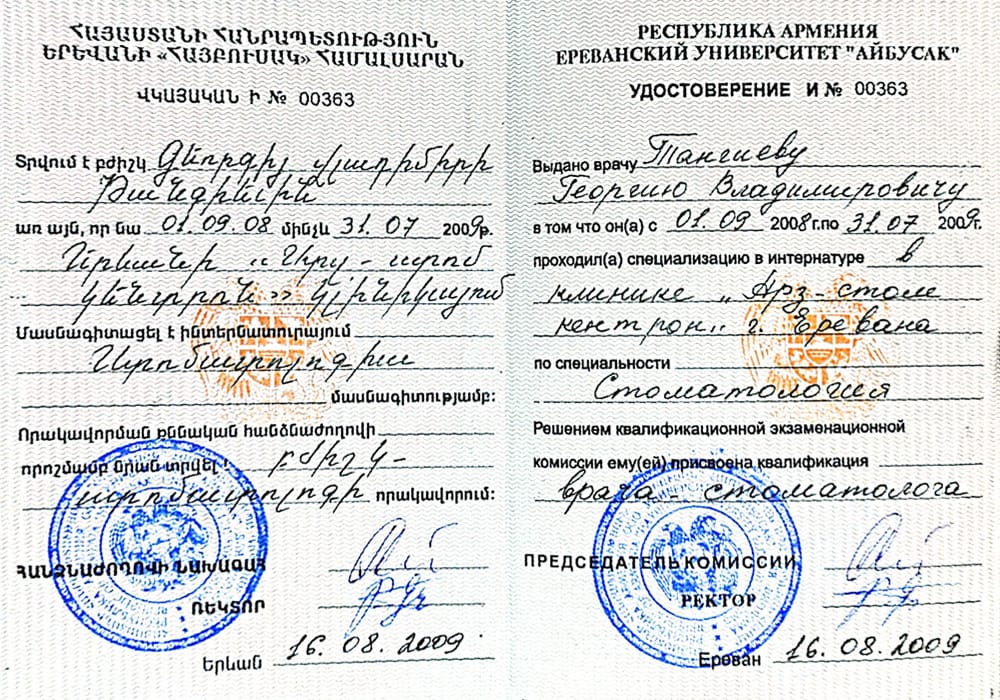 ՀԱՅԱՍՏԱՆԻ ՀԱՆՐԱՊԵՏՈՒԹՅՈՒՆ
ԵՐԵՎԱՆԻ «ՀԱՅԲՈՒՍԱԿ» ՀԱՄԱԼՍԱՐԱՆ
ՎԿԱՅԱԿԱՆ Ի № 00363
Տրվում է բժիշկ Գեորգիյ Վլադիմիրի
Թանգիևին
առ այն, որ նա 01.09.08 մինչև 31.07 2009թ.
Երևանի
կենտրոն» կլինիկայում
Մասնագիտացել է ինտերնատուրայում
Ստոմատոլոգիա
մասնագիտությամբ:
Որակավորման քննական հանձնաժողովի
որոշմամբ նրան տրվել է բժիշկ-
ստոմատոլոգի որակավորում:
ՀԱՆՁՆԱԺՈՂՈՎԻ ՆԱԽԱԳԱՀ
ՌԵԿՏՈՐ
Երևան 16.08.2009
РЕСПУБЛИКА АРМЕНИЯ
ЕРЕВАНСКИЙ УНИВЕРСИТЕТ "АЙБУСАК"
УДОСТОВЕРЕНИЕ И № 00363
Выдано врачу Тангиеву
Георгию Владимировичу
в том что он(а) с 01.09 2008г.по 31.07 2009г.
проходил(а) специализацию в интернатуре в
клинике „Арз-стом
кентрон" г. Еревана
по специальности
Стоматология
Решением квалификационной экзаменационной
комиссии ему(ей) присвоена квалификация
врача - стоматолога
ПРЕДСЕДАТЕЛЬ КОМИССИИ
РЕКТОР
Ереван 16.08.2009